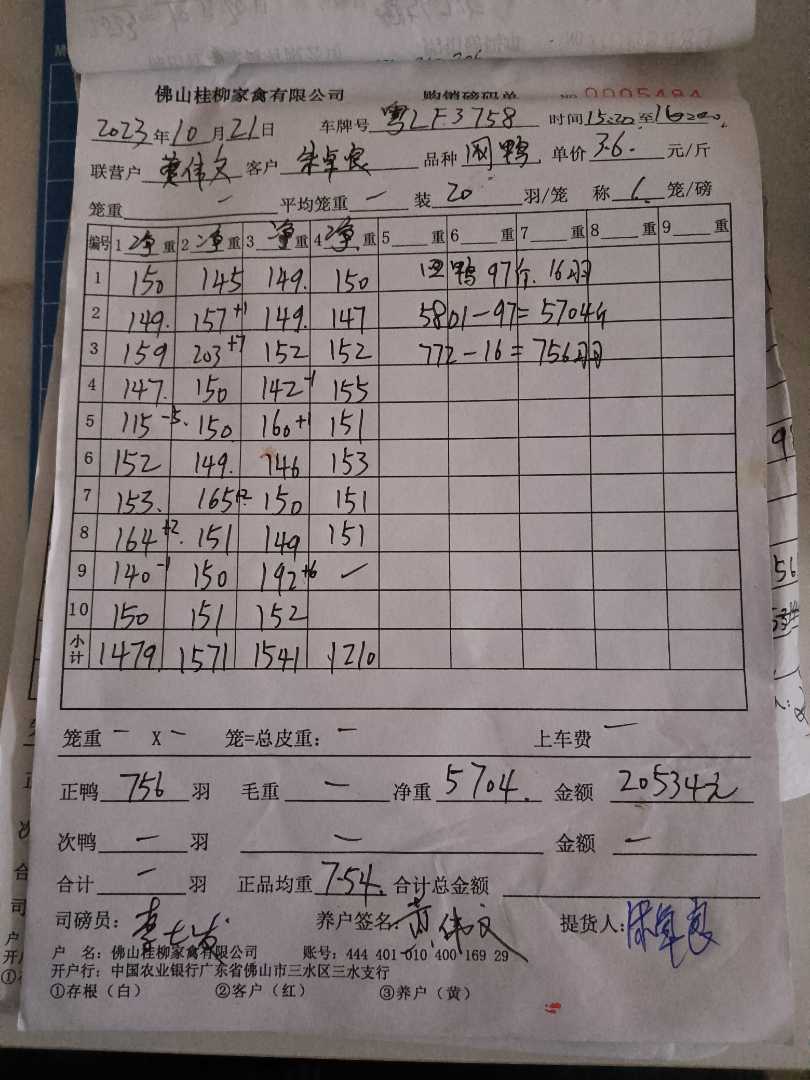 佛山桂柳家禽有限公司 购销磅码单 NO 0005484
2023年10月21日 车牌号 粤LF3758 时间15:20至16:20
联营户 黄伟文 客户 品种 网鸭 单价 3.6. 元/斤
笼重 一 平均笼重 一 装 20 羽/笼 称 6. 笼/磅
编号 1 净重 重 2 净重 重 3 净重 重 4 净重 重 5 重 6 重 7 重 8 重 9 重
1 150 145 149. 150 鸭 97斤. 16羽
2 149. 157+1 149. 147 5801-97=5704斤
3 159 203+7 152 152 772-16=756羽
4 147. 150 142-1 155
5 115-5. 150 160+1 151
6 152 149. 146 153
7 153. 165+2 150 151
8 164+2. 151 149 151
9 140-1 150 192+6 ✓
10 150 151 152
小计 1479. 1571 1541 1210
笼重 一 X 一 笼=总皮重: 一 上车费 一
正鸭 756 羽 毛重 一 净重 5704. 金额 20534元
次鸭 一 羽 一 金额 一
合计 一 羽 正品均重 7.54. 合计总金额
司磅员: 养户签名: 黄伟文 提货人:
户 名: 佛山桂柳家禽有限公司 账号: 444 401 010 400 169 29
开户行: 中国农业银行广东省佛山市三水区三水支行
①存根（白） ②客户（红） ③养户（黄）